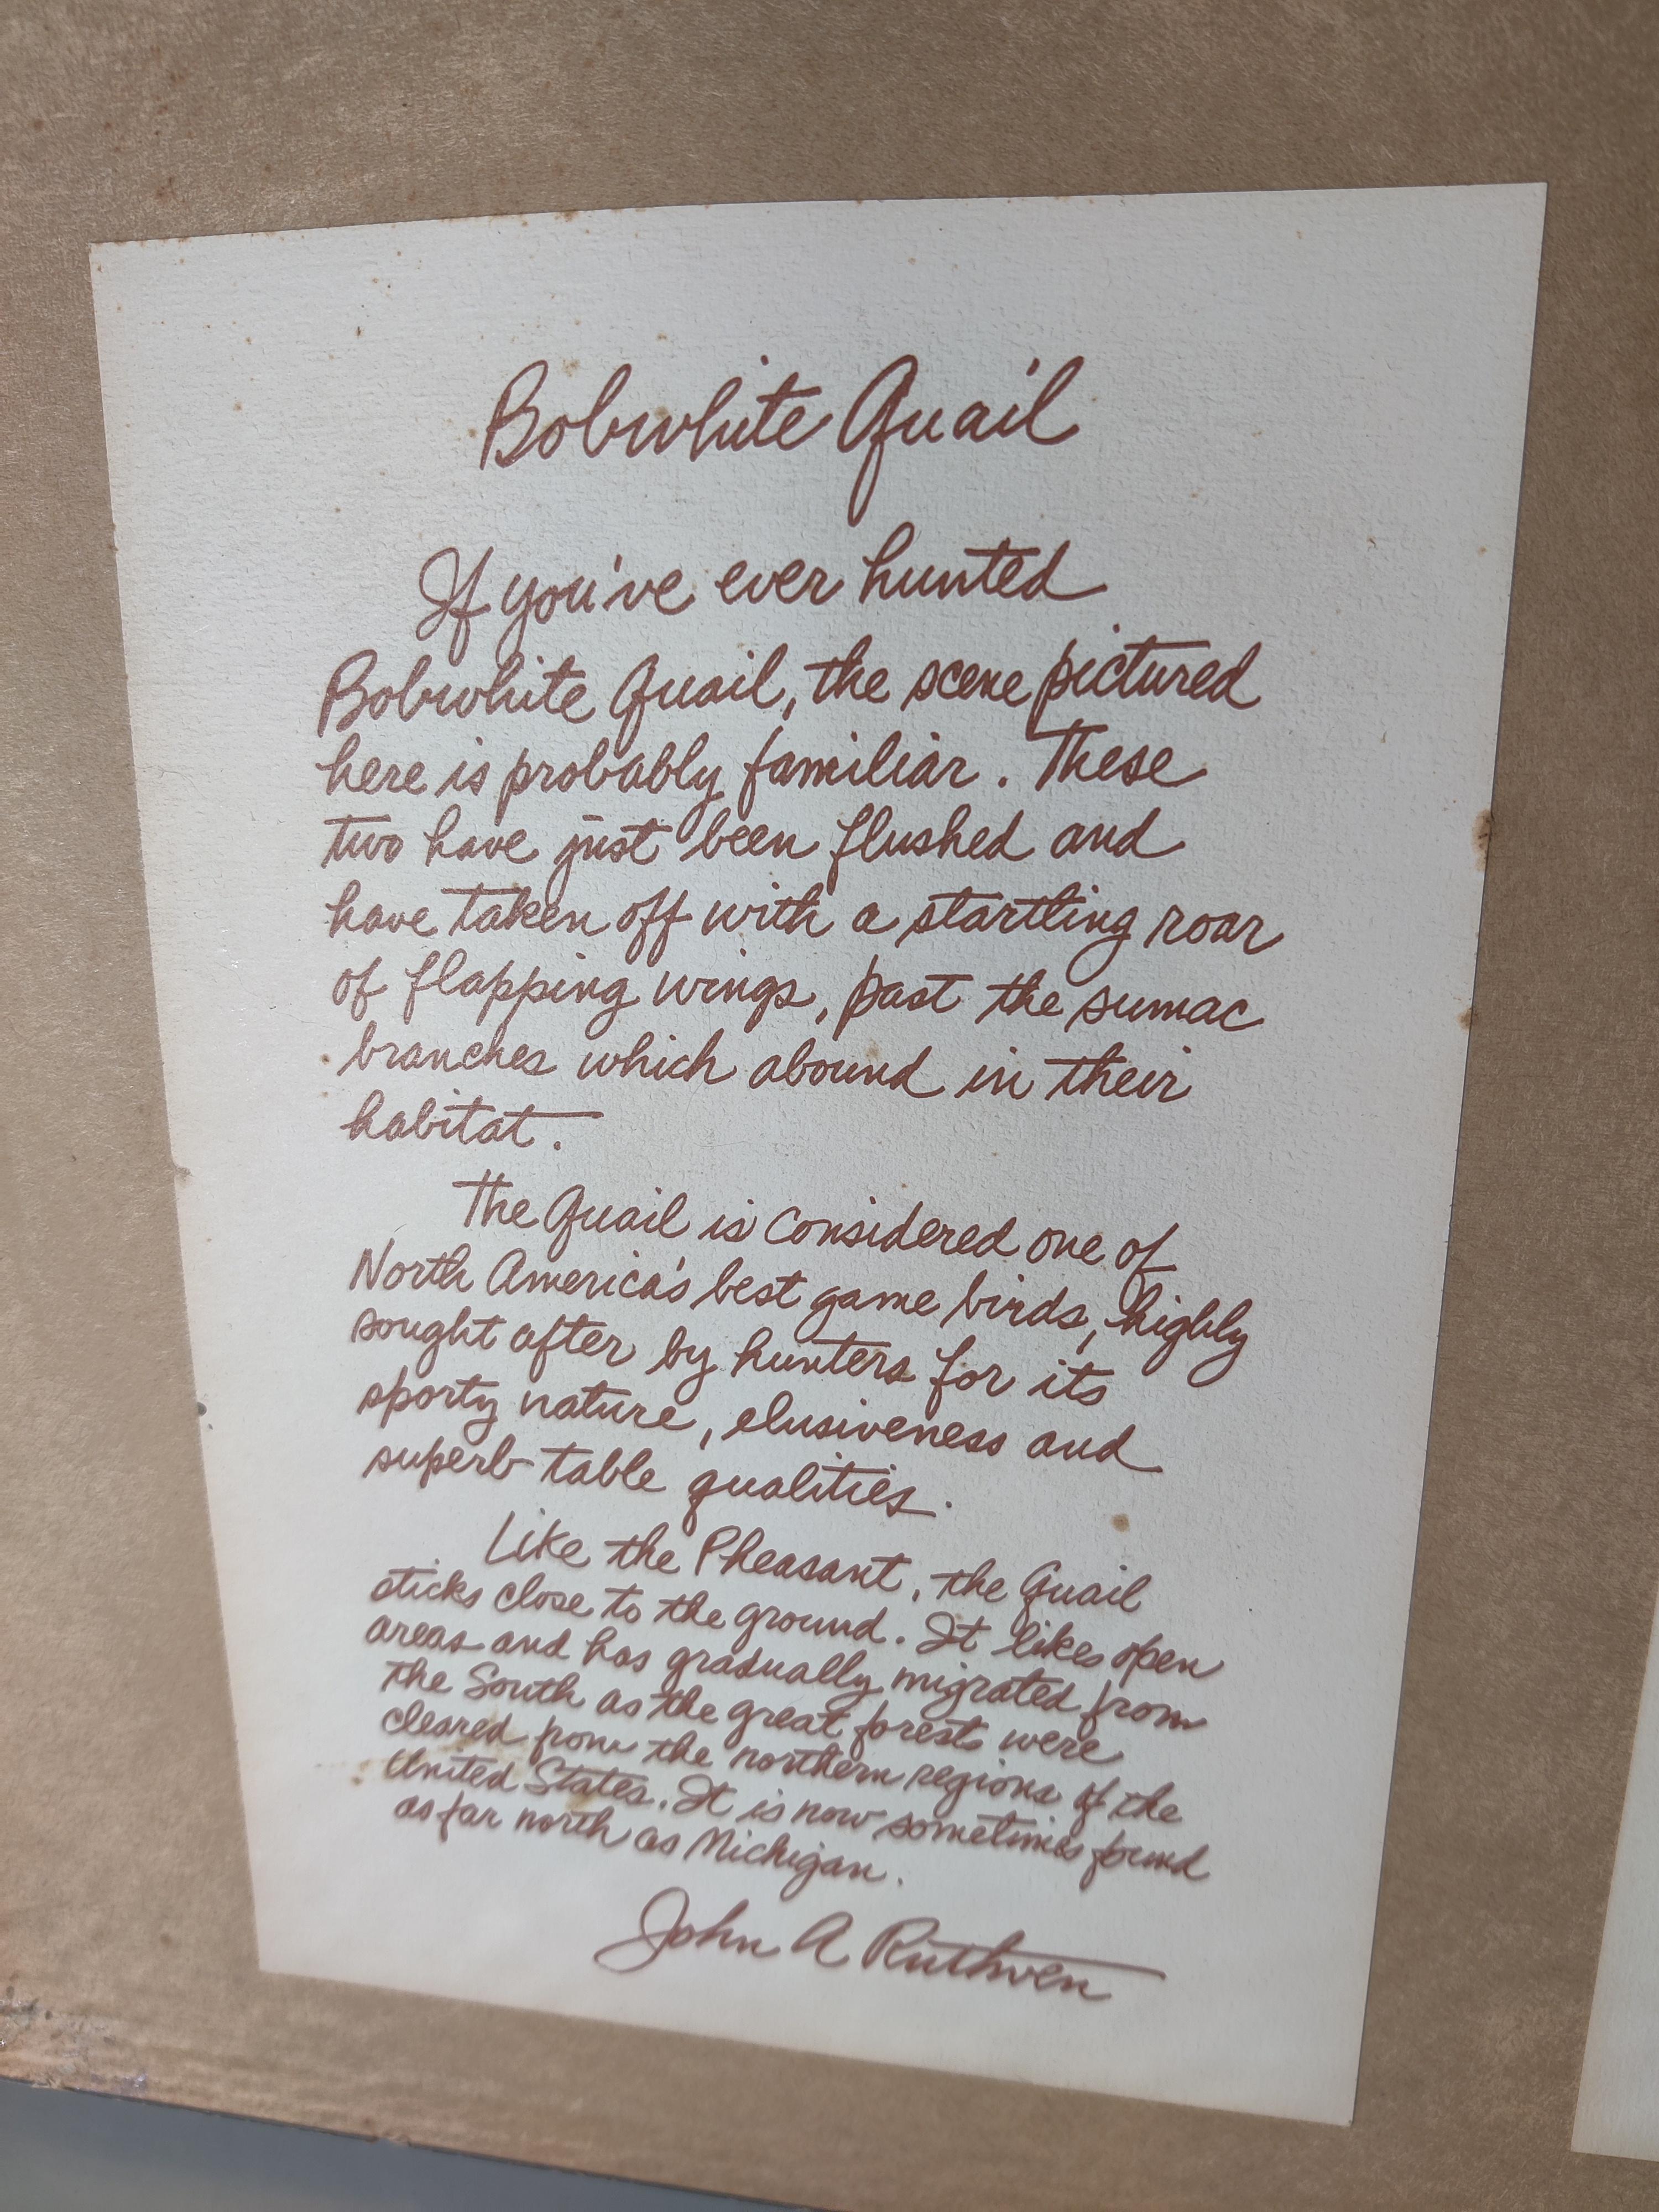 Bobwhite Quail
If you've ever hunted
Bobwhite Quail, the scene pictured
here is probably familiar. These
two have just been flushed and
have taken off with a startling roar
of flapping wings, past the sumac
branches which abound in their
habitat.
The Quail is considered one of
North America's best game birds, highly
sought after by hunters for its
sporty nature, elusiveness and
superb table qualities.
Like the Pheasant, the Quail
sticks close to the ground. It likes open
areas and has gradually migrated from
the South as the great forests were
cleared from the northern regions of the
United States. It is now sometimes found
as far north as Michigan.
John A Ruthven